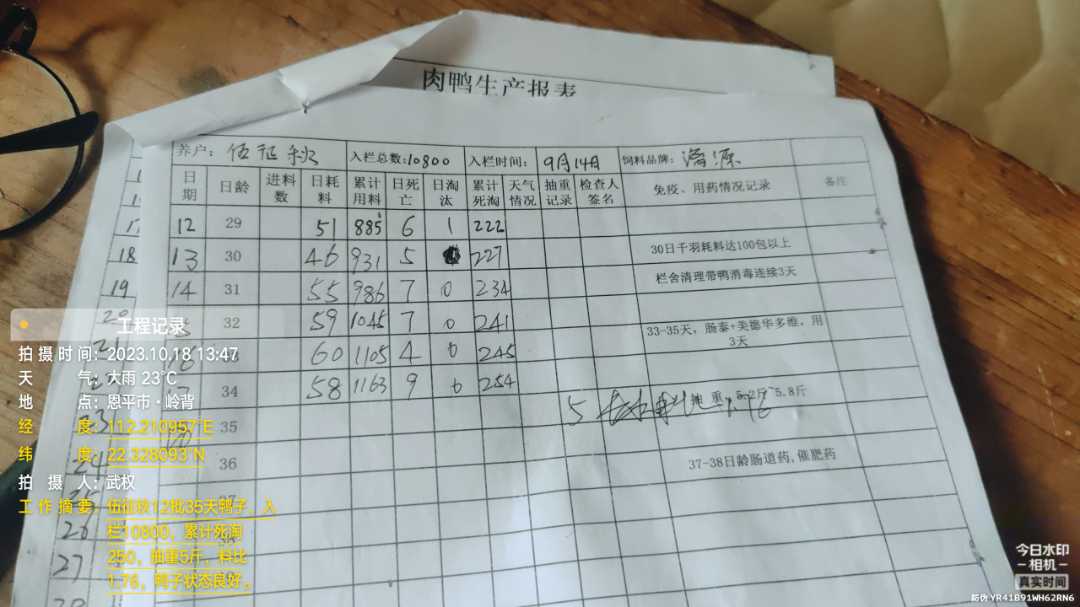 肉鸭生产报表
养户: 伍征秋 入栏总数:10800 入栏时间: 9月14日 饲料品牌:
日期 日龄 进料数 日耗料 累计用料 日死亡 日淘汰 累计死淘 天气情况 抽重记录 检查人签名 免疫、用药情况记录 备注
12 29 51 885 6 1 222
13 30 46 931 5 227 30日千羽耗料达100包以上
14 31 55 986 7 0 234 栏舍清理带鸭消毒连续3天
32 59 1045 7 0 241 33-35天，肠泰+美德华多维，用3天
60 1105 4 0 245
34 58 1163 9 0 254
35 抽重：5.2斤~5.8斤
36 37-38日龄肠道药,催肥药
17
18
19
20
26
27
工程记录
拍摄时间：2023.10.18 13:47
天气：大雨 23℃
地点：恩平市·岭背
经度：112.210957°E
纬度：22.328093°N
拍摄人：武权
工作摘要：伍征秋12批35天鸭子，入
栏10800，累计死淘
250，抽重5斤，料比
1.76，鸭子状态良好。
今日水印
相机
真实时间
防伪 YR41B91WH62RN6